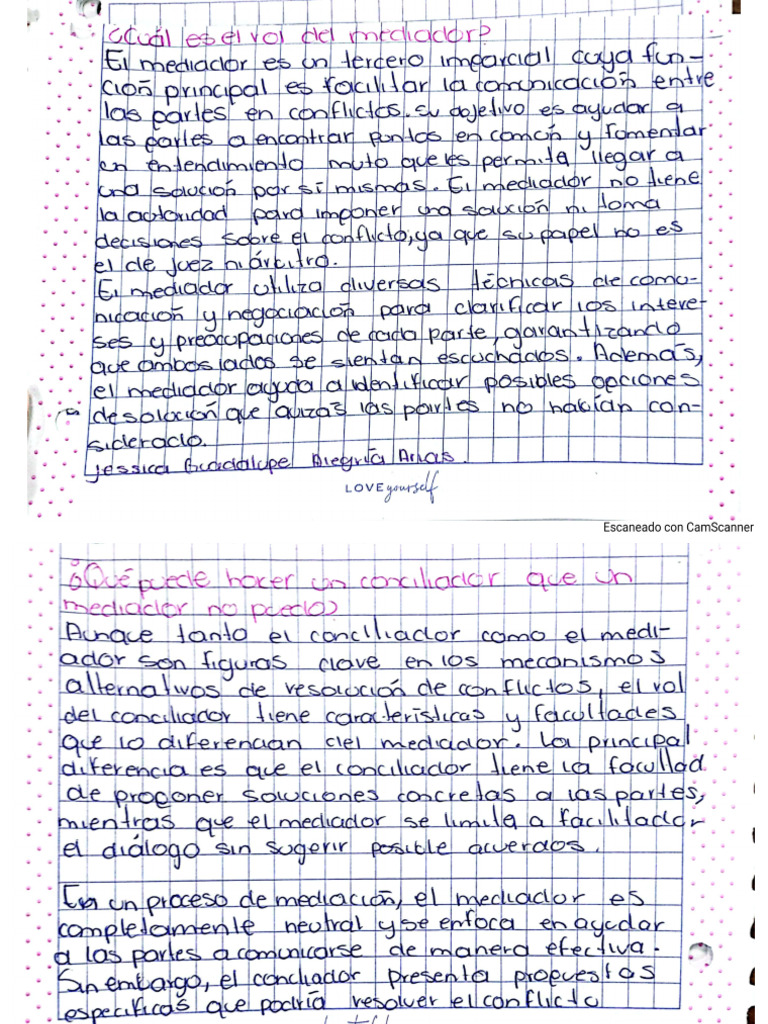 ¿Cuál es el rol del mediador?
El mediador es un tercero imparcial cuya fun-
ción principal es facilitar la comunicación entre
las partes en conflictos. su objetivo es ayudar a
las partes a encontrar puntos en común y fomentar
un entendimiento mutuo que les permita llegar a
una solución por sí mismas. El mediador no tiene
la autoridad para imponer una solución ni toma
decisiones sobre el conflicto, ya que su papel no es
el de juez ni árbitro.
El mediador utiliza diversas técnicas de comu-
nicación y negociación para clarificar los intere-
ses y preocupaciones de cada parte, garantizando
que ambos lados se sientan escuchados. Además,
el mediador ayuda a identificar posibles opciones
de solución que quizás las partes no habían con-
siderado.
Jessica Guadalupe Alegría Arias.
LOVE yourself
Escaneado con CamScanner
¿Qué puede hacer un conciliador que un
mediador no puedo?
Aunque tanto el conciliador como el medi-
ador son figuras clave en los mecanismos
alternativos de resolución de conflictos, el rol
del conciliador tiene características y facultades
que lo diferencian del mediador. La principal
diferencia es que el conciliador tiene la facultad
de proponer soluciones concretas a las partes,
mientras que el mediador se limita a facilitador
el diálogo sin sugerir posible acuerdos.
En un proceso de mediación, el mediador es
completamente neutral y se enfoca en ayudar
a las partes a comunicarse de manera efectiva.
Sin embargo, el conciliador presenta propuestas
específicas que podría resolver el conflicto